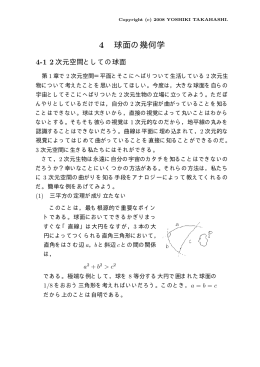 Copyright (c) 2008 YOSHIKI TAKAHASHI.
4 球面の幾何学
4-1 2次元空間としての球面
第1章で2次元空間＝平面とそこにへばりついて生活している2次元生
物について考えたことを思い出してほしい。今度は、大きな球面を自らの
宇宙としてそこにへばりついた2次元生物の立場に立ってみよう。ただぼ
んやりとしているだけでは、自分の2次元宇宙が曲がっていることを知る
ことはできない。球は大きいから、直接的な視覚によって丸いことはわか
らない。われわれのような3次元的生物ではないのだから、地平線の丸みを
認識することはできないだろう。曲線は平面に埋め込まれて、2次元的な
視覚によってはじめて曲がっていることを直接に知ることができるのだ。
3次元空間に生きる私たちにはそれができる。
さて、2次元生物は永遠に自分の宇宙のカタチを知ることはできないの
だろうか? 幸いなことにいくつかの方法がある。それらの方法は、私たち
に3次元空間の曲がりを知る手段をアナロジーによって教えてくれるの
だ。簡単な例をあげてみよう。
(1) 三平方の定理が成り立たない
このことは、最も根源的で重要なポイン
トである。球面においてできるかぎりまっ
すぐな「直線」は大円をなすが、3本の大
円によってつくられる直角三角形において、
直角をはさむ辺 a, b と斜辺 c との間の関係
は、
a² + b² > c²
である。極端な例として、球を8等分する大円で囲まれた球面の
1/8をおおう三角形を考えればいいだろう。このとき、a = b = c
だから上のことは自明である。